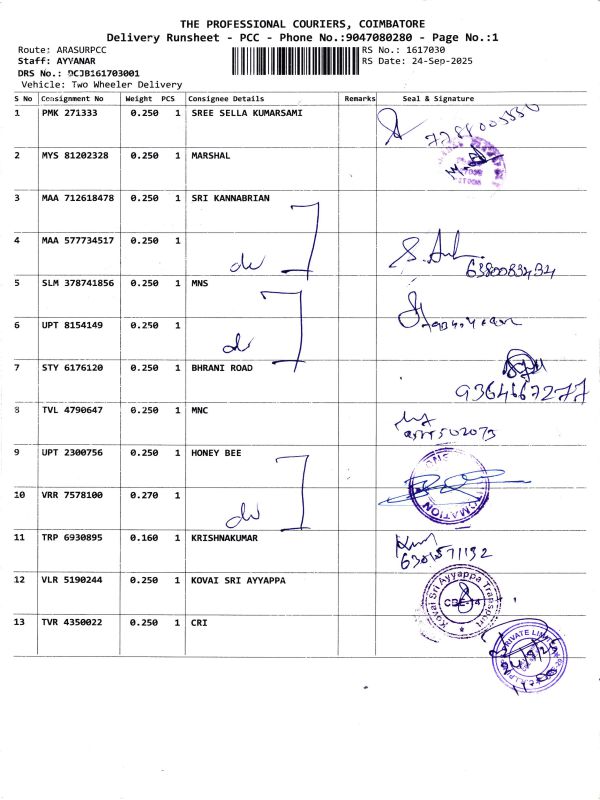 THE PROFESSIONAL COURIERS, COIMBATORE
Delivery Runsheet - PCC - Phone No.:9047080280 - Page No.:1
Route: ARASURPCC RS No.: 1617030
Staff: AYYANAR RS Date: 24-Sep-2025
DRS No.: DCJB161703001
Vehicle: Two Wheeler Delivery
S No Consignment No Weight PCS Consignee Details Remarks Seal & Signature
1 PMK 271333 0.250 1 SREE SELLA KUMARSAMI
2 MYS 81202328 0.250 1 MARSHAL
3 MAA 712618478 0.250 1 SRI KANNABRIAN
4 MAA 577734517 0.250 1
do
6380083434
5 SLM 378741856 0.250 1 MNS
6 UPT 8154149 0.250 1
do
7 STY 6176120 0.250 1 BHRANI ROAD
9364667277
8 TVL 4790647 0.250 1 MNC
9 UPT 2300756 0.250 1 HONEY BEE
10 VRR 7578100 0.270 1
do
11 TRP 6930895 0.160 1 KRISHNAKUMAR
6301571192
12 VLR 5190244 0.250 1 KOVAI SRI AYYAPPA
Kovai Sri Ayyappa Transport
CBE-14
13 TVR 4350022 0.250 1 CRI
PRIVATE LIMITED